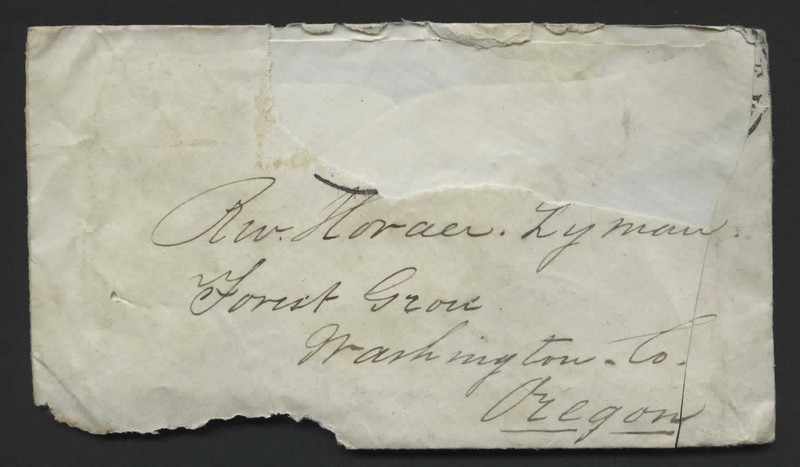 Rev. Horace. Lyman.
Forest Grove
Washington - Co.
Oregon